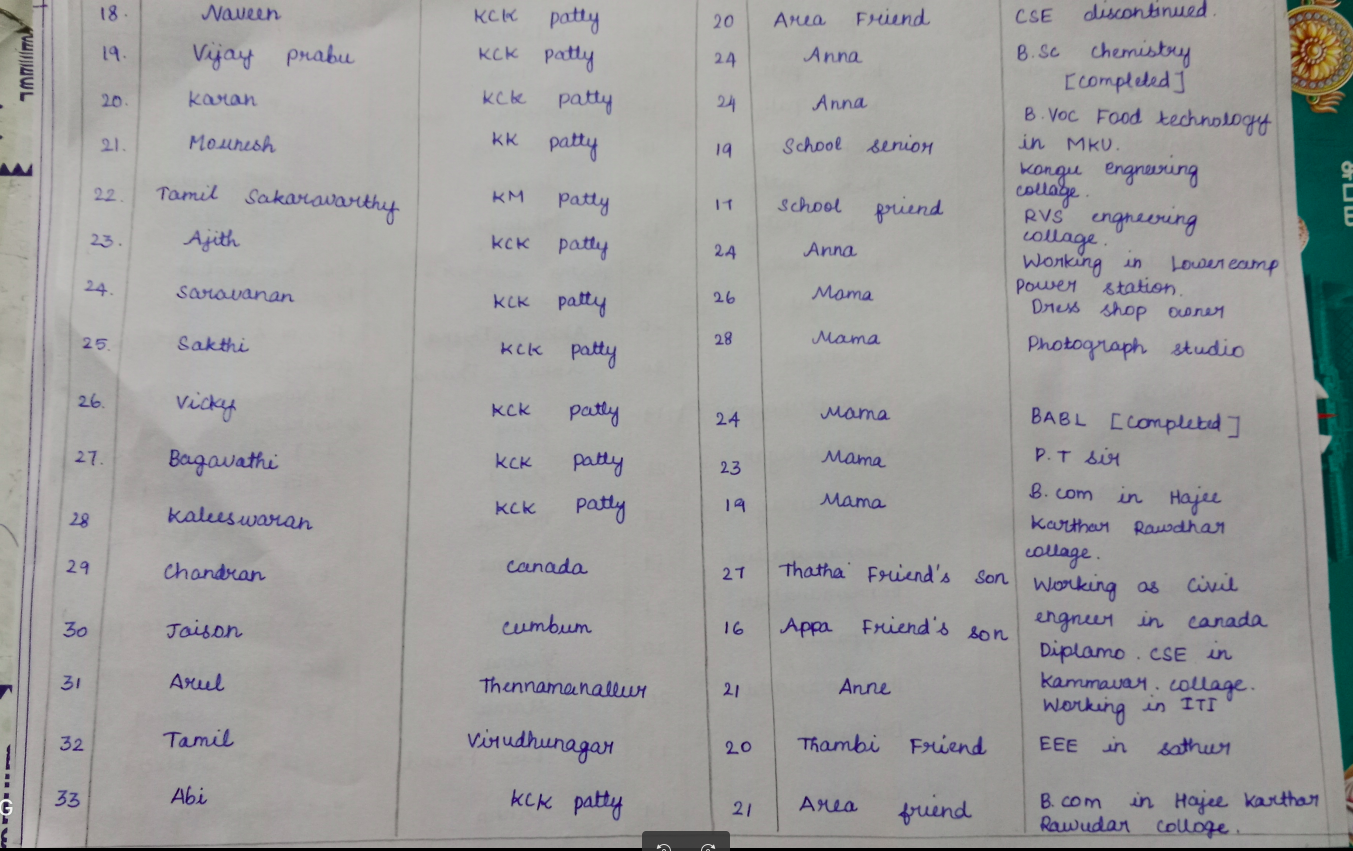 18. Naveen KCK patty 20 Area Friend CSE discontinued.
19. Vijay prabu KCK patty 24 Anna B.Sc chemistry
[completed]
20. Karan KCK patty 24 Anna B.Voc Food technology
in MKU.
21. Mounesh KK patty 19 School senior Kongu engneering
collage.
22. Tamil Sakaravarthy KM patty 17 School friend RVS engneering
collage.
23. Ajith KCK patty 24 Anna Working in Lowercamp
Power station.
24. Saravanan KCK patty 26 Mama Dress shop owner
25. Sakthi KCK patty 28 Mama Photograph studio
26. Vicky KCK patty 24 Mama BABL [completed]
27. Bagavathi KCK patty 23 Mama P.T sir
28 Kaleeswaran KCK patty 19 Mama B.com in Hajee
Karthar Rawdhar
collage.
29 Chandran Canada 27 Thatha Friend's son Working as civil
engneer in canada
30 Jaison Cumbum 16 Appa Friend's son Diplamo. CSE in
Kammavar. collage.
31 Arul Thennamanallur 21 Anne Working in ITI
32 Tamil Virudhunagar 20 Thambi Friend EEE in sathur
33 Abi KCK patty 21 Area friend B.com in Hajee Karthar
Rawudar colloge.